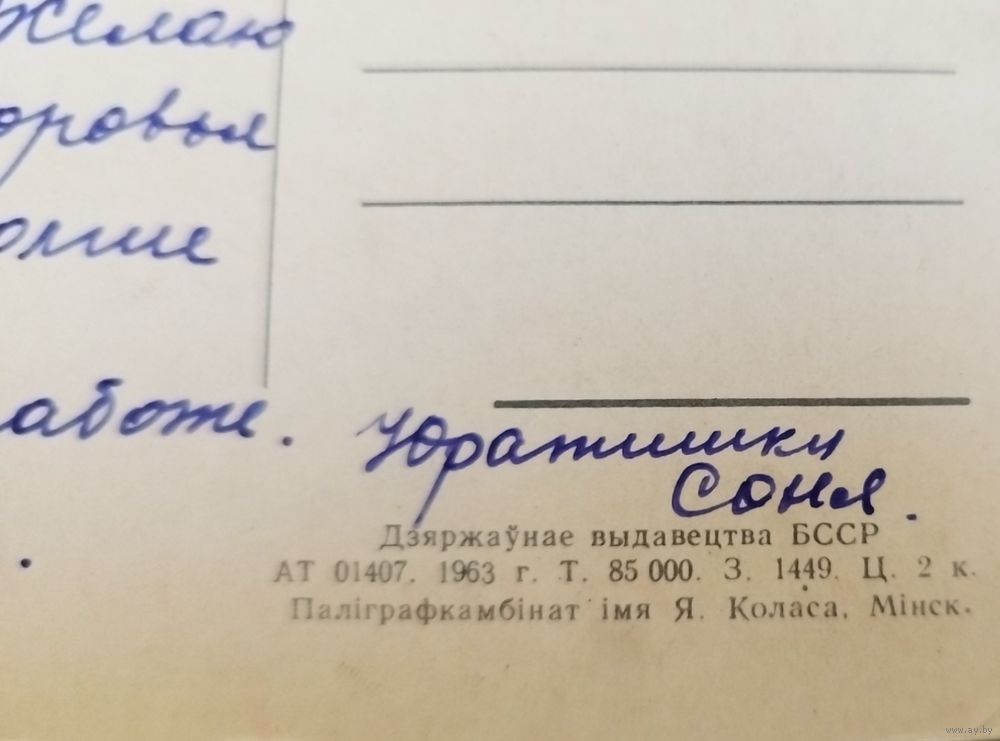 Желаю
оровья
олгие
аботе.
Юратишки
Соня.
Дзяржаўнае выдавецтва БССР
АТ 01407. 1963 г. Т. 85 000. З. 1449. Ц. 2 к.
Паліграфкамбінат імя Я. Коласа, Мінск.
www.ay.by